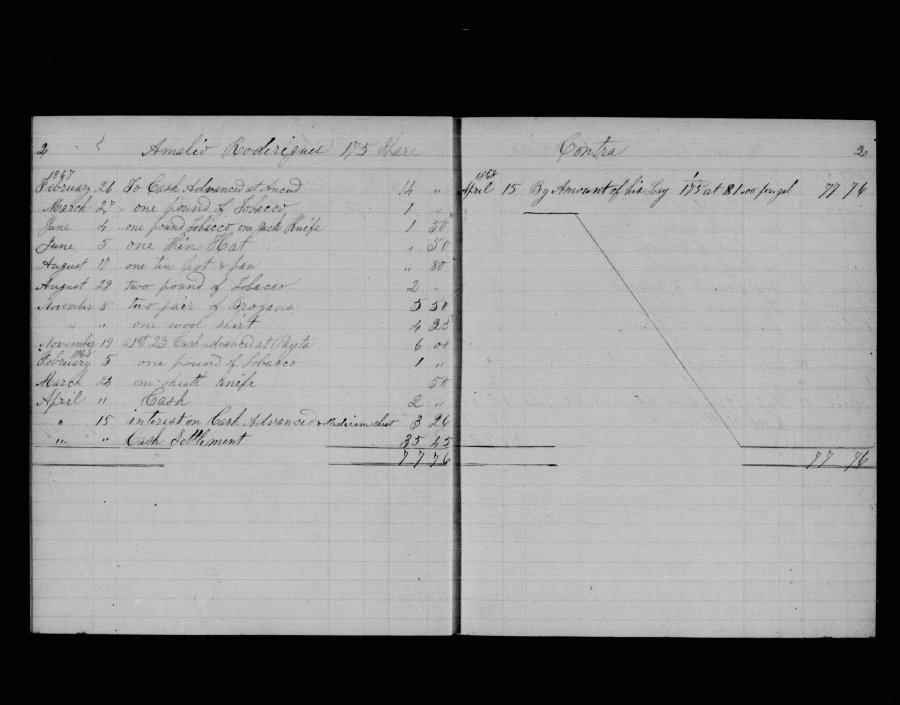 2 Amalio Roderigues 175 Share
1867
February 26 To Cash Advanced at 4 "
March 27 " one pound of Tobacco 1 "
June 4 one pound Tobacco, one Jack Knife 1 50
June 5 one thin Hat " 50
August 17 one tin pot & pan " 80
August 29 two pound of Tobacco 2 "
November 8 two pair of Brogans 5 50
" " one wool shirt 4 25
November 19 21st 23 Cash advanced at Payta 6 00
1868
February 5 one pound of Tobacco 1 "
March 24 one sheath Knife 50
April " Cash 2 "
" 15 interest on Cash Advanced & Medicine chest 3 26
" " Cash Settlement 35 45
77 76
Contra 2
1868
April 15 By Amount of his Lay 175 at 81 00 77 76
77 76